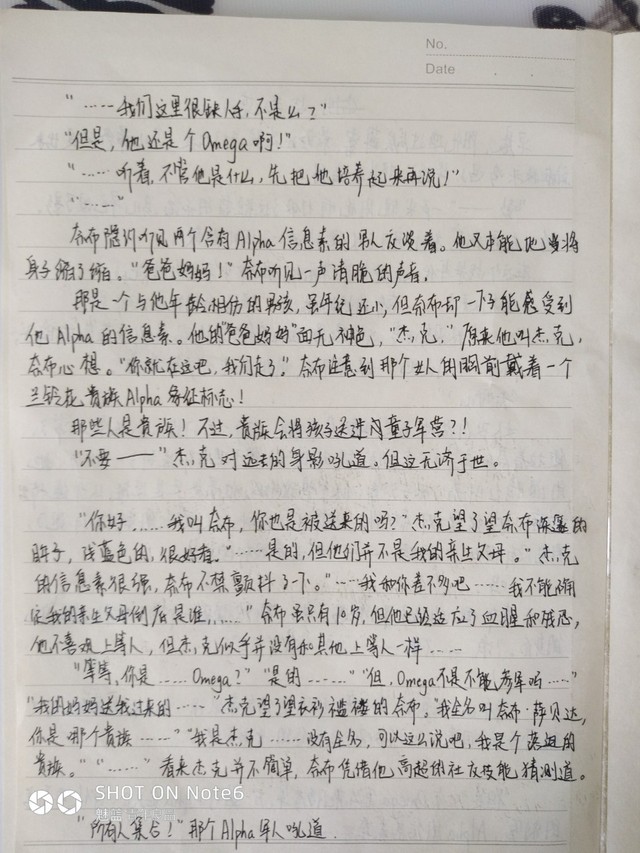 No.
Date . .
“……我们这里很缺人手，不是么？”
“但是，他还是个Omega啊！”
“……听着，不管他是什么，先把他培养起来再说！”
“……”
奈布隐约听见两个含有Alpha信息素的男人交谈着。他又本能地将
身子缩了缩。“爸爸妈妈！”奈布听见一声清脆的声音，
那是一个与他年龄相仿的男孩，虽年纪还小，但奈布却一下子能感受到
他Alpha的信息素。他的“爸爸妈妈”面无神色，“杰克，”原来他叫杰克，
奈布心想。“你就在这吧，我们走了。”奈布注意到那个女人的胸前戴着一个
兰铃花贵族Alpha象征标志！
那些人是贵族！不过，贵族会将孩子送进闪童子军营？！
“不要——”杰克对远去的身影吼道。但这无济于世。
“你好……我叫奈布，你也是被送来的吗？”杰克望了望奈布深邃的
眸子，浅蓝色的，很好看。“……是的，但他们并不是我的亲生父母。”杰克
的信息素很强，奈布不禁颤抖了一下。“……我和你差不多吧……我不能确
定我的亲生父母倒底是谁……”奈布虽只有10岁，但他已经适应了血腥和残忍，
他不喜欢上等人，但杰克似乎并没有和其他上等人一样……
“等等，你是……Omega？”“是的……”“但，Omega不是不能参军吗……”
“我的妈妈送我过来的……”杰克望了望衣衫褴褛的奈布。“我全名叫奈布·萨贝达，
你是哪个贵族……？”“我是杰克……没有全名，可以这么说吧，我是个落迫的
贵族。”“……”看来杰克并不简单，奈布凭借他高超的社交技能猜测道。
“所有人集合！”那个Alpha军人吼道.
SHOT ON Note6